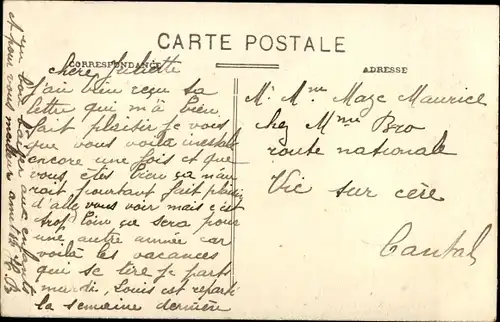 CARTE POSTALE
CORRESPONDANCE
ADRESSE
chère Juliette
J'ai bien reçu ta
lettre qui m'a bien
fait plaisir je vois
que vous voilà installé
encore une fois et que
vous êtes bien ça m'au
rait pourtant fait plaisir
d'aller vous voir mais c'est
trop loin ça sera pour
une autre année car
voilà les vacances
qui se tire je parts
mardi, Louis est reparti
la semaine dernière
reçu bon baiser aux enfants
A pour vous meilleur amitié
Mr Mme Maze Maurice
chez Mme Bro
route nationale
Vic sur cère
Cantal